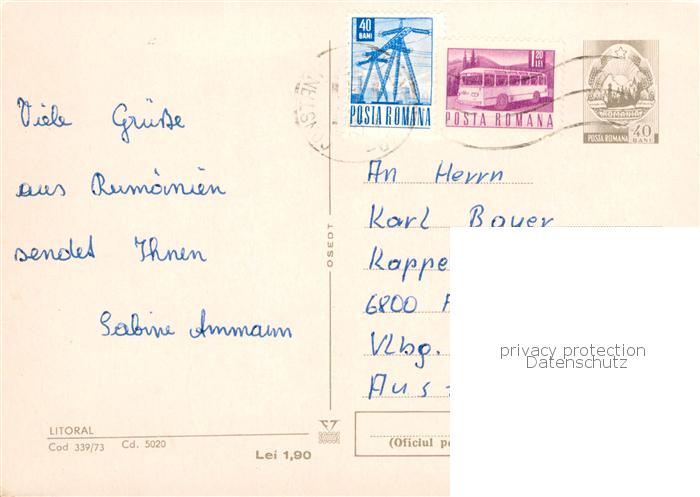 Viele Grüße
aus Rumänien
sendet Ihnen
Sabine Ammann
LITORAL
Cod 339/73 Cd. 5020
Lei 1,90
OSEDT
40
BANI
POSTA ROMANA
1,20
LEI
POSTA ROMANA
ROMANIA
POSTA ROMANA
40
BANI
An Herrn
Karl Bayer
Kappe
6800
Vlbg.
Aus
(Oficiul po
privacy protection
Datenschutz